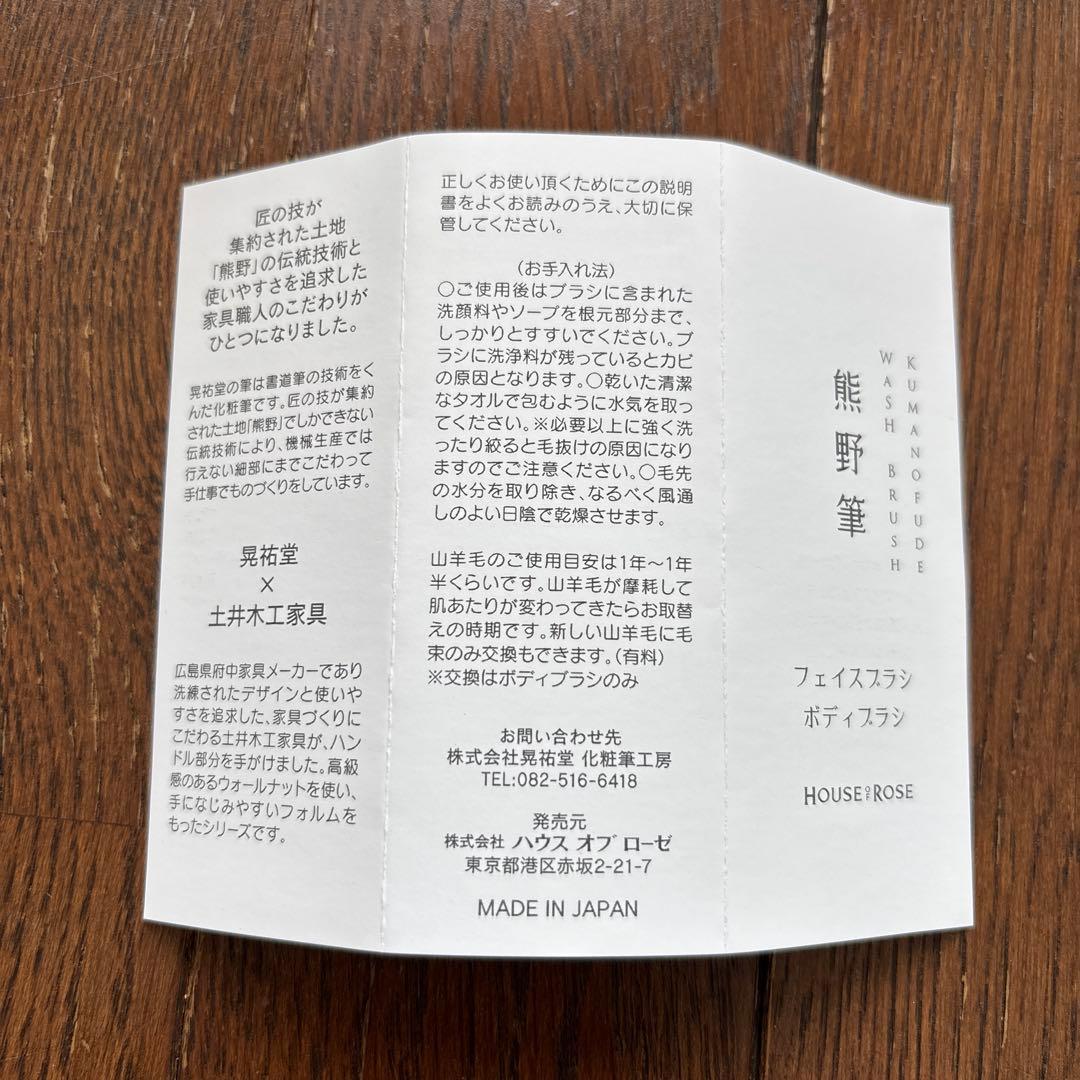 匠の技が
集約された土地
「熊野」の伝統技術と
使いやすさを追求した
家具職人のこだわりが
ひとつになりました。
晃祐堂の筆は書道筆の技術をく
んだ化粧筆です。匠の技が集約
された土地「熊野」でしかできない
伝統技術により、機械生産では
行えない細部にまでこだわって
手仕事でものづくりをしています。
晃祐堂
×
土井木工家具
広島県府中家具メーカーであり
洗練されたデザインと使いや
すさを追求した、家具づくりに
こだわる土井木工家具が、ハン
ドル部分を手がけました。高級
感のあるウォールナットを使い、
手になじみやすいフォルムを
もったシリーズです。
正しくお使い頂くためにこの説明
書をよくお読みのうえ、大切に保
管してください。
(お手入れ法)
○ご使用後はブラシに含まれた
洗顔料やソープを根元部分まで、
しっかりとすすいでください。ブ
ラシに洗浄料が残っているとカビ
の原因となります。○乾いた清潔
なタオルで包むように水気を取っ
てください。※必要以上に強く洗
ったり絞ると毛抜けの原因になり
ますのでご注意ください。○毛先
の水分を取り除き、なるべく風通
しのよい日陰で乾燥させます。
山羊毛のご使用目安は1年〜1年
半くらいです。山羊毛が摩耗して
肌あたりが変わってきたらお取替
えの時期です。新しい山羊毛に毛
束のみ交換もできます。(有料)
※交換はボディブラシのみ
お問い合わせ先
株式会社晃祐堂 化粧筆工房
TEL:082-516-6418
発売元
株式会社 ハウス オブ ローゼ
東京都港区赤坂2-21-7
MADE IN JAPAN
KUMANOFUDE
WASH BRUSH
熊野筆
フェイスブラシ
ボディブラシ
HOUSE OF ROSE